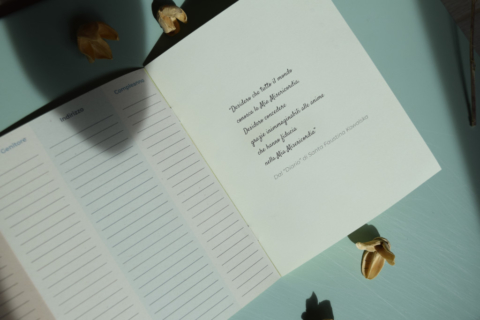 Cenitore
Indirizzo
Compleanno
"Desidero che tutto il mondo
conosca la Mia Misericordia.
Desidero concedere
grazie inimmaginabili alle anime
che hanno fiducia
nella Mia Misericordia"
Dal "Diario" di Santa Faustina Kowalska